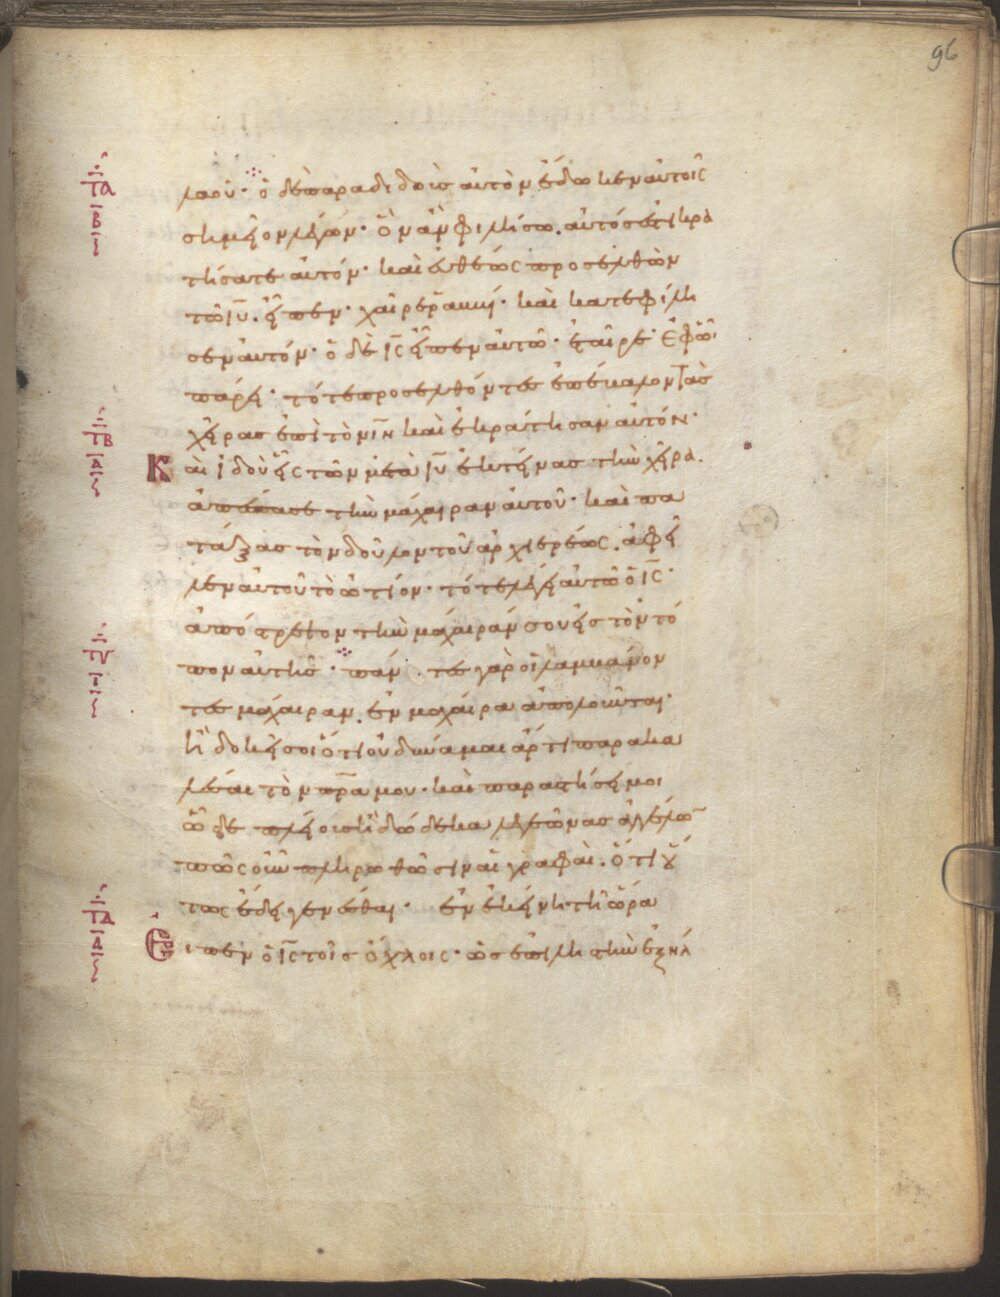 96
λαοῦ· ὁ δὲ παραδιδοὺς αὐτὸν ἔδωκεν αὐτοῖς
σημεῖον λέγων· ὃν ἂν φιλήσω, αὐτός ἐστι κρα
τήσατε αὐτόν· καὶ εὐθέως προσελθὼν
τῶ ιυ̅, εἶπεν· χαῖρε ῥαββί· καὶ κατεφίλη
σεν αὐτόν· ὁ δὲ ις̅ εἶπεν αὐτῶ· ἑταῖρε· ἐφ' ὧ
πάρει· τότε προσελθόντες ἐπέβαλον τὰς
χεῖρας ἐπὶ τὸν ιν̅ καὶ ἐκράτησαν αὐτόν·
Καὶ ἰδοὺ εἷς τῶν μετὰ ιυ̅ ἐκτείνας τὴν χεῖρα,
ἀπέσπασε τὴν μάχαιραν αὐτοῦ· καὶ πα
τάξας τὸν δοῦλον τοῦ ἀρχιερέως, ἀφεῖ
λεν αὐτοῦ τὸ ὠτίον· τότε λέγει αὐτῶ ὁ ις̅·
ἀπόστρεψον τὴν μάχαιράν σου εἰς τὸν τό
πον αὐτῆς· πάντες γὰρ οἱ λαμβάνον
τες μάχαιραν, ἐν μαχαίρα ἀπολοῦνται·
ἢ δοκεῖ σοι ὅτι οὐ δύναμαι ἄρτι παρακα
λέσαι τὸν πρ̅α μου· καὶ παραστήσει μοι
ὧδε πλείους ἢ δώδεκα λεγεῶνας ἀγγέλων
πῶς οὖν πληρωθῶσιν αἱ γραφαί, ὅτι οὕ
τως ἔδει γενέσθαι· ἐν ἐκείνη τῆ ὥρα
Εἶπεν ὁ ις̅ τοῖς ὄχλοις· ὡς ἐπὶ ληστὴν ἐξήλ